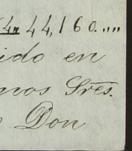 44,160.""
ido en
nos Sres.
Don